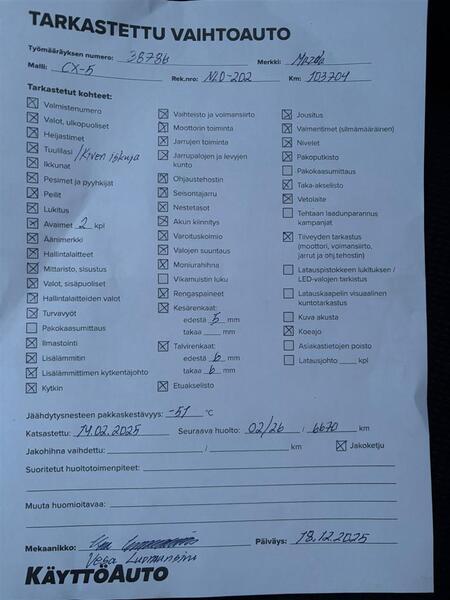 TARKASTETTU VAIHTOAUTO
Työmääräyksen numero: 38786 Merkki: Mazda
Malli: CX-5 Rek.nro: NLO-202 Km: 103704
Tarkastetut kohteet:
Valmistenumero
Valot, ulkopuoliset
Heijastimet
Tuulilasi /Kiven iskuja
Ikkunat
Pesimet ja pyyhkijät
Peilit
Lukitus
Avaimet 2 kpl
Äänimerkki
Hallintalaitteet
Mittaristo, sisustus
Valot, sisäpuoliset
Hallintalaitteiden valot
Turvavyöt
Pakokaasumittaus
Ilmastointi
Lisälämmitin
Lisälämmittimen kytkentäjohto
Kytkin
Vaihteisto ja voimansiirto
Moottorin toiminta
Jarrujen toiminta
Jarrupalojen ja levyjen
kunto
Ohjaustehostin
Seisontajarru
Nestetasot
Akun kiinnitys
Varoituskolmio
Valojen suuntaus
Moniurahihna
Vikamuistin luku
Rengaspaineet
Kesärenkaat:
edestä 5 mm
takaa mm
Talvirenkaat:
edestä 6 mm
takaa 6 mm
Etuakselisto
Jousitus
Vaimentimet (silmämääräinen)
Nivelet
Pakoputkisto
Pakokaasumittaus
Taka-akselisto
Vetolaite
Tehtaan laadunparannus
kampanjat
Tiiveyden tarkastus
(moottori, voimansiirto,
jarrut ja ohj.tehostin)
Latauspistokkeen lukituksen /
LED-valojen tarkistus
Latauskaapelin visuaalinen
kuntotarkastus
Kuva akusta
Koeajo
Asiakastietojen poisto
Latausjohto kpl
Jäähdytysnesteen pakkaskestävyys: -51 °C
Katsastettu: 14.02.2025 Seuraava huolto: 02/26 / 6670 km
Jakohihna vaihdettu: / km Jakoketju
Suoritetut huoltotoimenpiteet:
Muuta huomioitavaa:
Mekaanikko: Päiväys: 18.12.2025
Vesa
KÄYTTÖAUTO